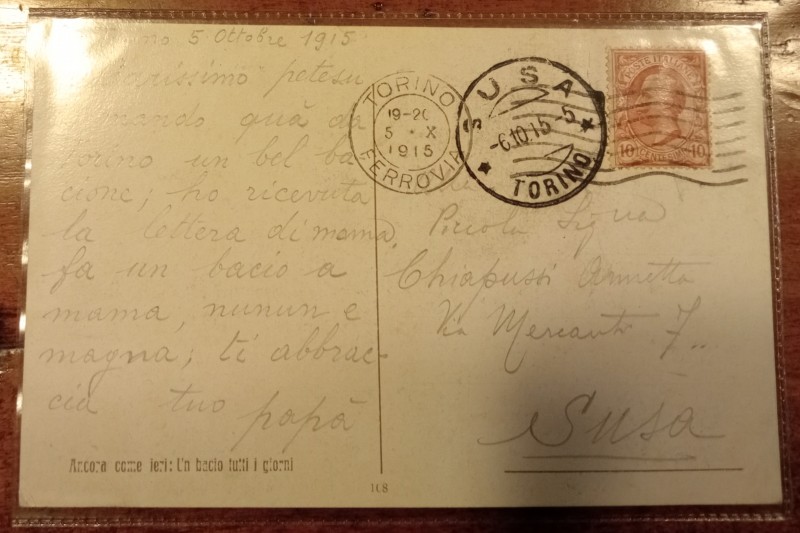 5 Ottobre 1915
petesu
mando quà da
Torino un bel ba
cione; ho ricevuta
la lettera di mama,
fa un bacio a
mama, nunun e
magna; ti abbrac-
cia tuo papà
Ancora come ieri: Un bacio tutti i giorni
108
TORINO
19-20
5 · X
1915
FERROVIA
SUSA
-6.10.15-5
TORINO
POSTE ITALIANE
10 CENTESIMI 10
Piccola Signa
Chiapussi Annetta
Via Mercanti 7
Susa